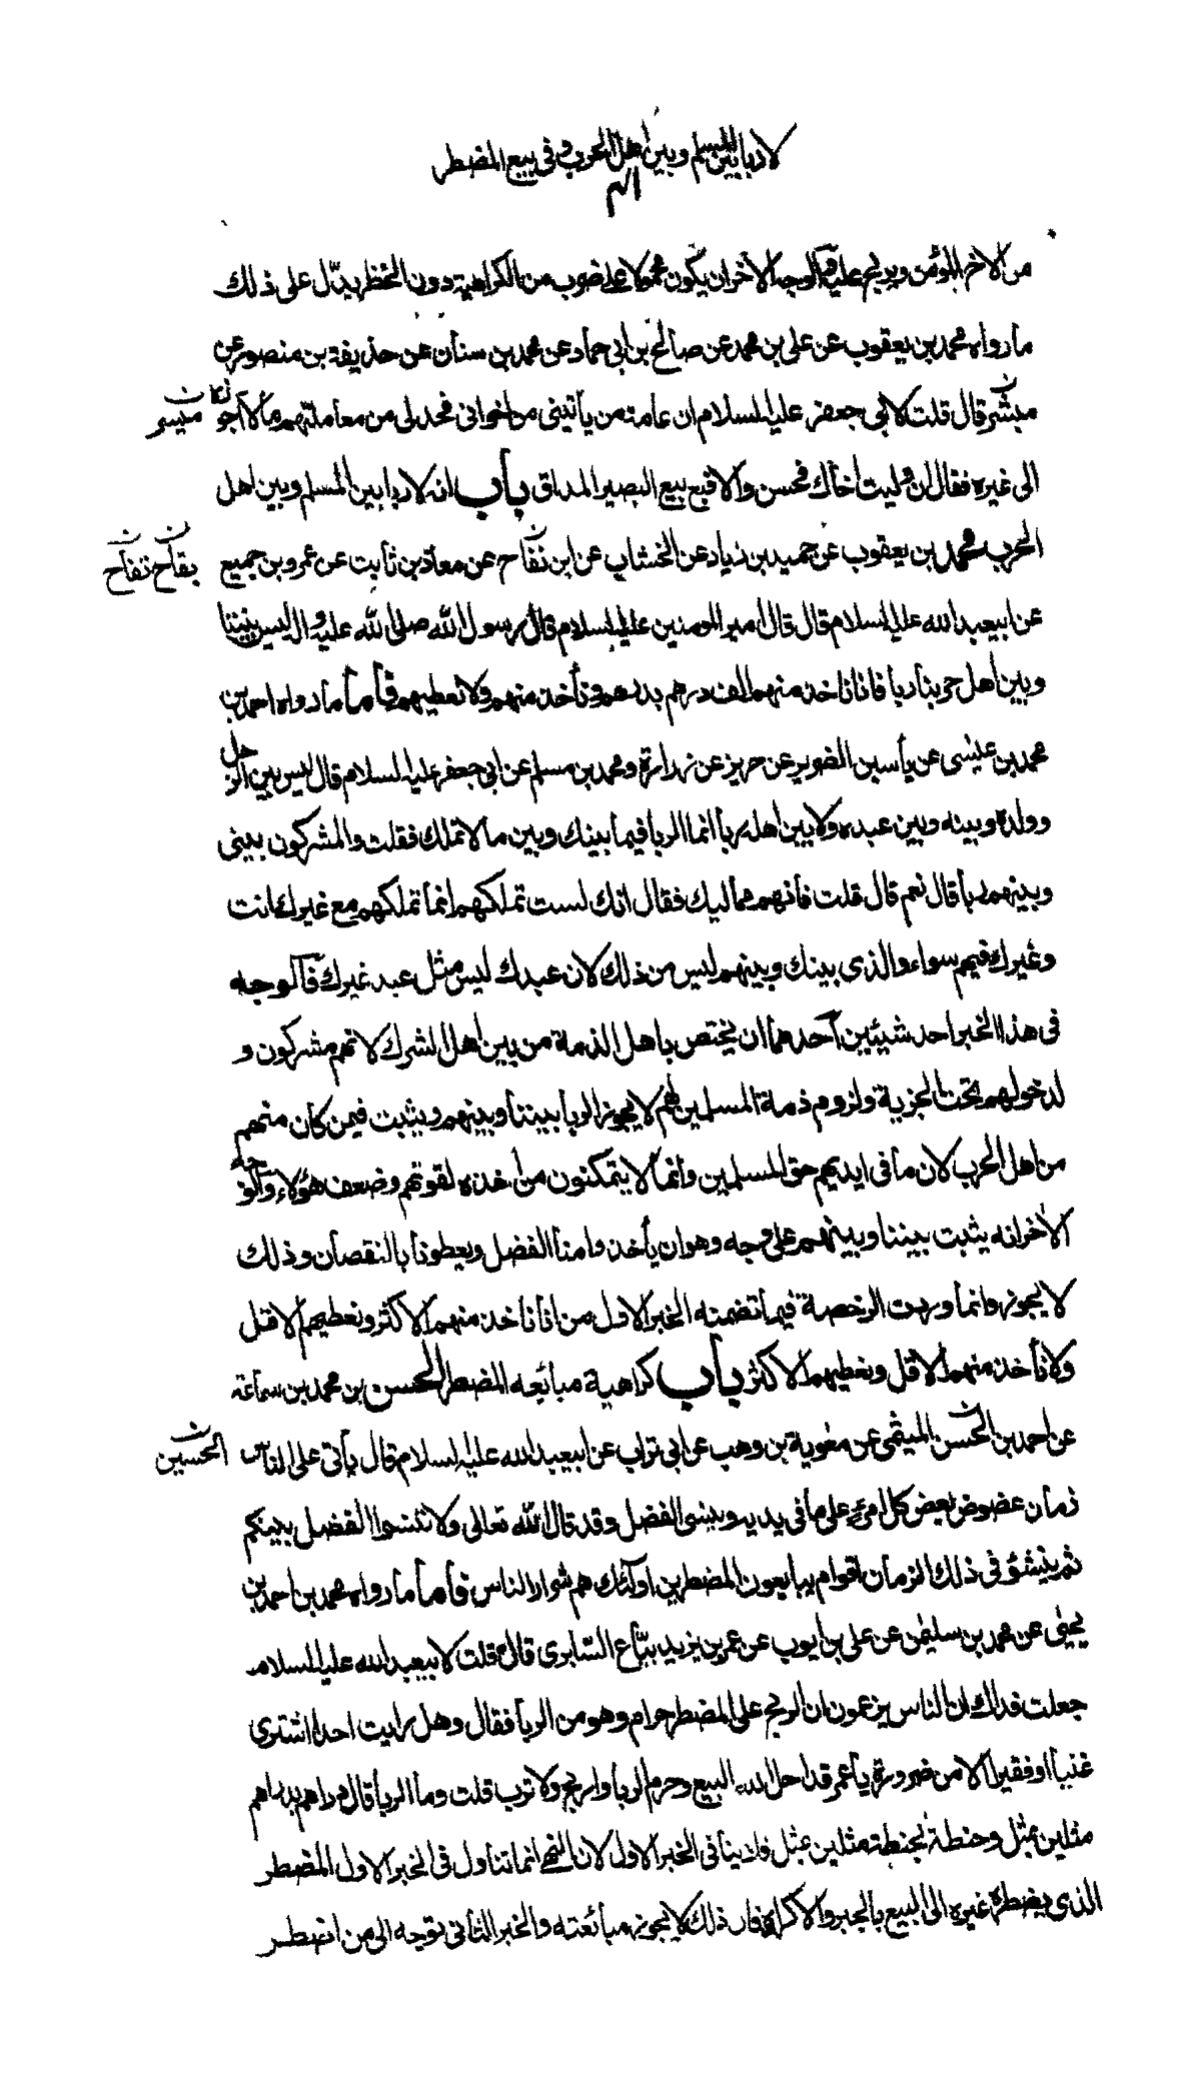 لا ربا بين المسلم وبين اهل الحرب و في بيع المضطر
من الاخ المؤمن ويربح عليه والوجه الاخر ان يكون محمولا على ضرب من الكراهية دون الحظر يدل على ذلك
ما رواه محمد بن يعقوب عن على بن محمد عن صالح بن ابى حماد عن محمد بن سنان عن حذيفة بن منصور عن
ميسر قال قلت لابى جعفر عليه السلام ان عامة من يأتينى من اخوانى فحد لى من معاملتهم ما لا اجوز
الى غيره فقال ان وليت اخاك فحسن والا فبع بيع البصير المداق باب انه لا ربا بين المسلم وبين اهل
الحرب محمد بن يعقوب عن حميد بن زياد عن الخشاب عن ابن بقاح عن معاذ بن ثابت عن عمرو بن جميع
بقاح ن تفاح ن
عن ابيعبد الله عليه السلام قال قال امير المومنين عليه السلام قال رسول الله صلى الله عليه واله ليس بيننا
وبين اهل حربنا ربا فانا ناخذ منهم الف درهم بدرهم ونأخذ منهم ولا نعطيهم فأما ما رواه احمد بن
محمد بن عيسى عن يأسين الضرير عن حريز عن زرارة ومحمد بن مسلم عن ابى جعفر عليه السلام قال ليس بين الرجل
وولده وبينه وبين عبده ولا بين اهله ربا انما الربا فيما بينك وبين ما لا تملك فقلت والمشركون بينى
وبينهم ربا قال نعم قال قلت فانهم مماليك فقال انك لست تملكهم انما تملكهم مع غيرك انت
وغيرك فيهم سواء والذى بينك وبينهم ليس من ذلك لان عبدك ليس مثل عبد غيرك فالوجه
فى هذا الخبر احد شيئين احدهما ان يختص باهل الذمة من بين اهل الشرك لانهم مشركون و
لدخولهم تحت الجزية ولزوم ذمة المسلمين لهم لا يجوز الربا بيننا وبينهم ويثبت فيمن كان منهم
من اهل الحرب لان ما فى ايديهم حق المسلمين وانما لا يتمكنون من اخذه لقوتهم وضعف هؤلاء والوجه
الاخر انه يثبت بيننا وبينهم على وجه وهو ان يأخذوا منا الفضل ويعطونا بالنقصان وذلك
لا يجوز وانما وردت الرخصة فيما تضمنه الخبر الاول من انا نأخذ منهم الاكثر ونعطيهم الاقل
ولا نأخذ منهم الاقل ونعطيهم الاكثر باب كراهية مبايعه المضطر الحسن بن محمد بن سماعة
عن احمد بن الحسن الميثمى عن معوية بن وهب عن ابى تراب عن ابيعبد الله عليه السلام قال يأتى على الناس
الحسين ن
زمان عضوض يعض كل امرئ على ما فى يديه وينسى الفضل وقد قال الله تعالى ولا تنسوا الفضل بينكم
ثم ينشؤ فى ذلك الزمان اقوام يبايعون المضطرين اولئك هم شرار الناس فأما ما رواه محمد بن احمد بن
يحيى عن محمد بن سليمن عن على بن ايوب عن عمر بن يزيد بياع السابرى قال قلت لابيعبد الله عليه السلام
جعلت فداك ان الناس يزعمون ان الربح على المضطر حرام وهو من الربا فقال وهل رايت احدا اشترى
غنيا او فقيرا الا من ضرورة يا عمر قد احل الله البيع وحرم الربا واربح ولا ترب قلت وما الربا قال دراهم بدراهم
مثلين بمثل وحنطة بحنطة مثلين بمثل فلا ينافى الخبر الاول لان النهى انما تناول فى الخبر الاول المضطر
الذى يضطره غيره الى البيع بالجبر والاكراه فان ذلك لا يجوز مبائعته والخبر الثانى توجه الى من اضطر